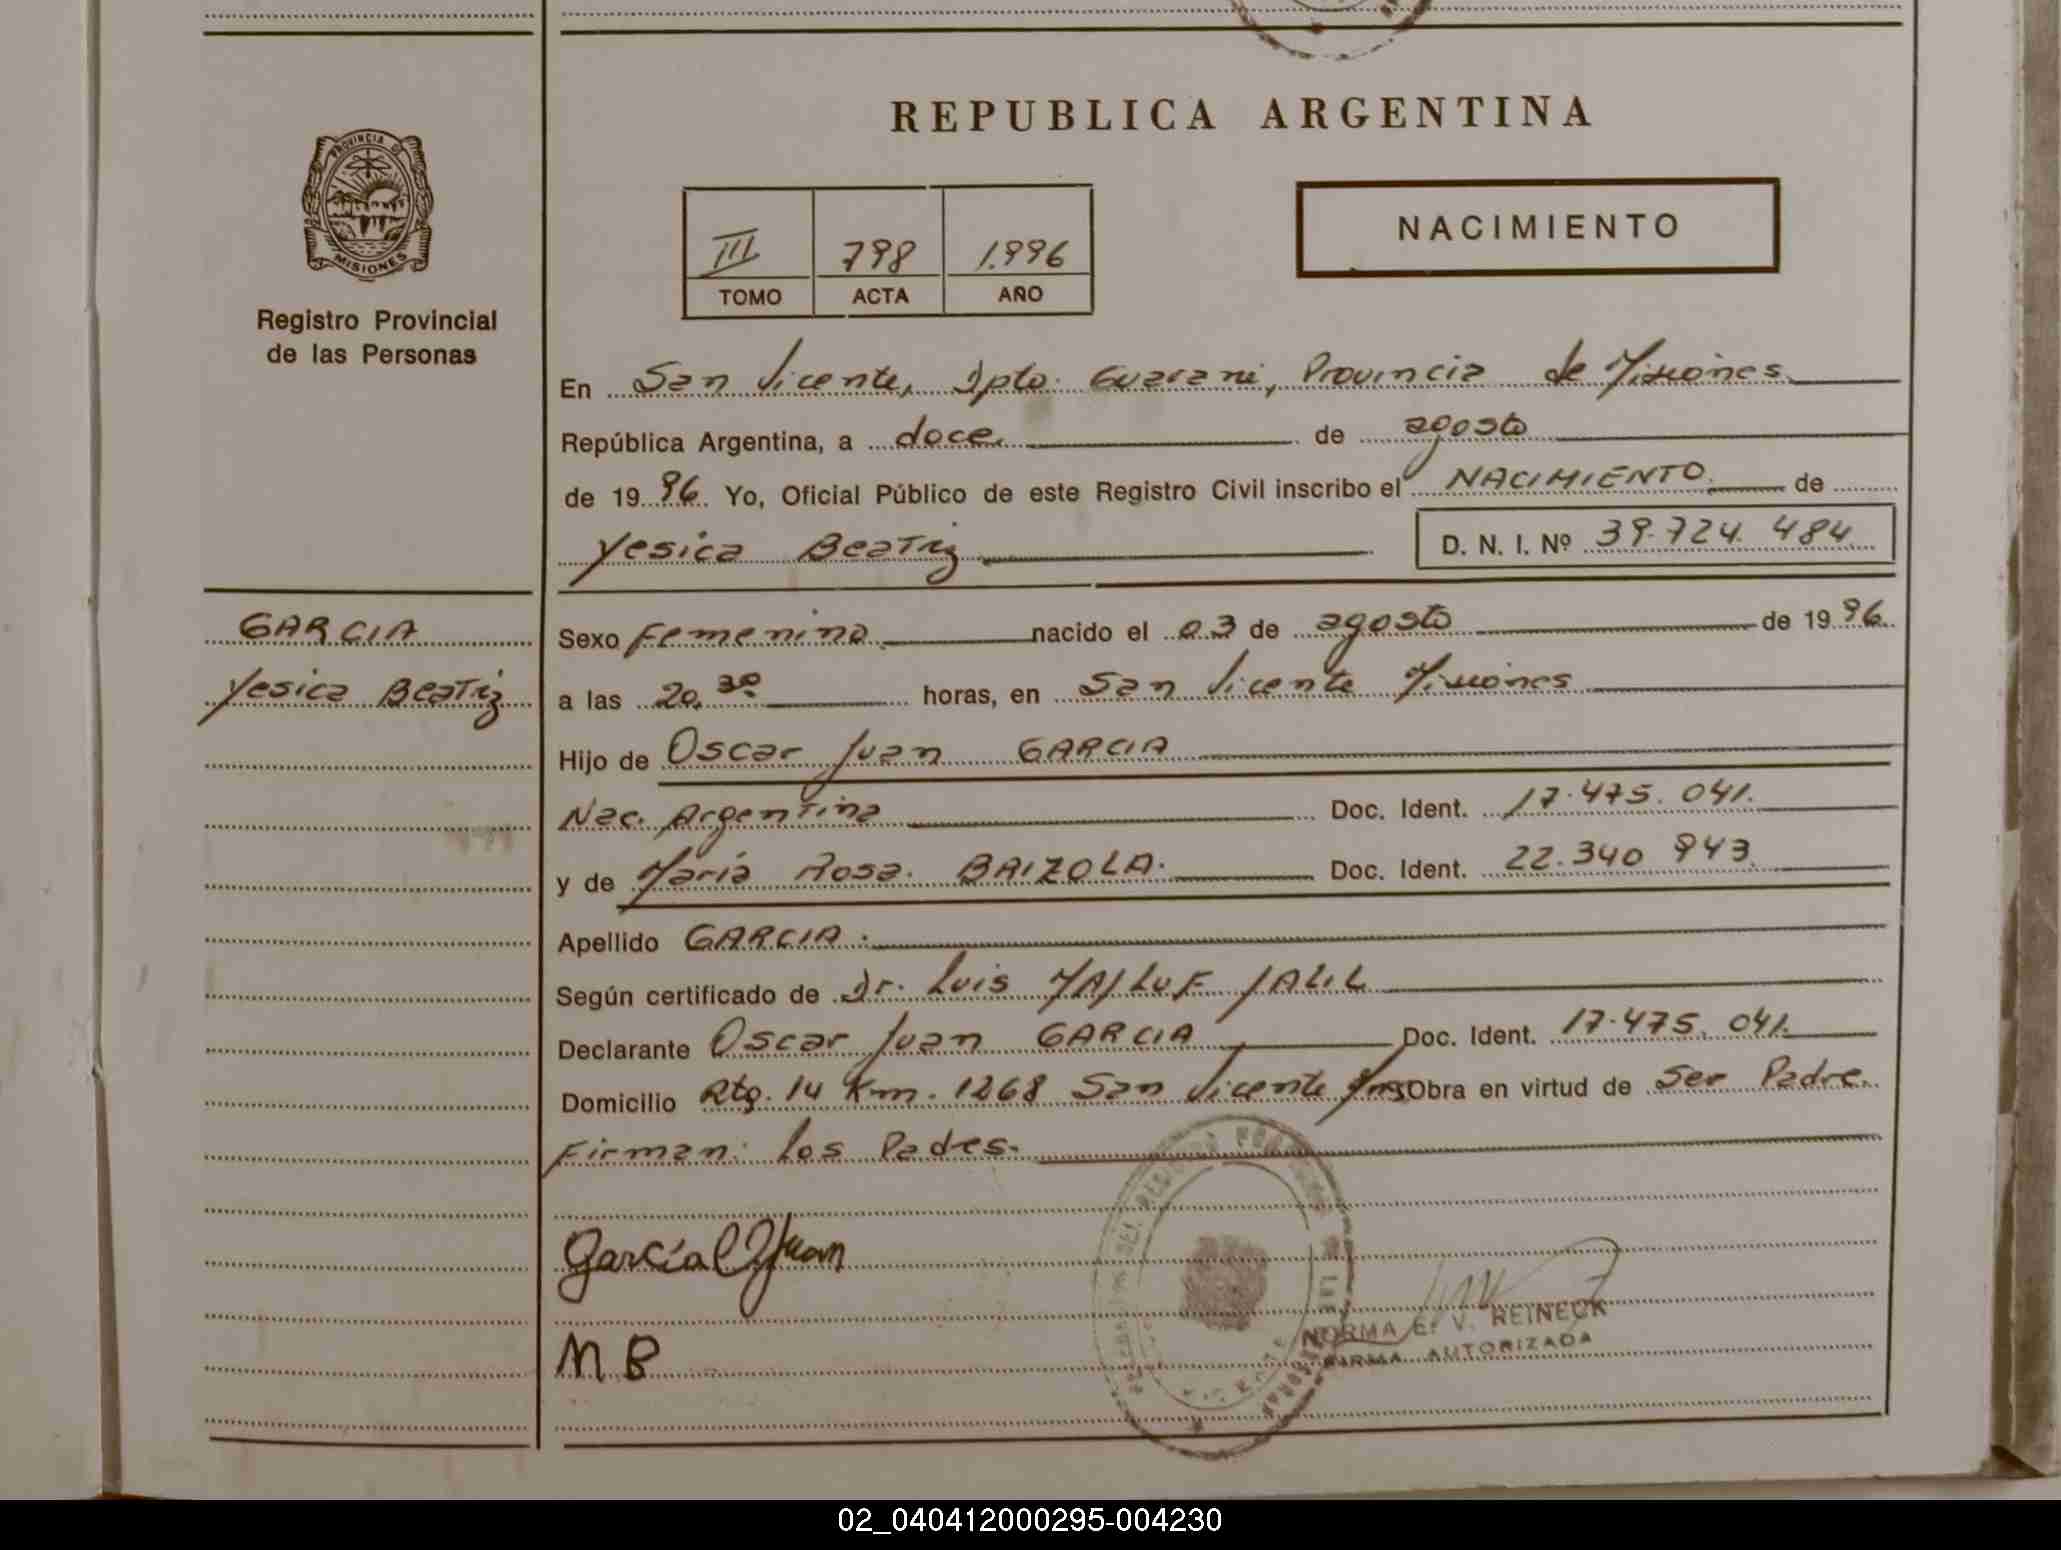 REPUBLICA ARGENTINA
PROVINCIA DE
MISIONES
Registro Provincial
de las Personas
NACIMIENTO
III 798 1.996
TOMO ACTA AÑO
En San Vicente, Dpto. Guarani, Provincia de Misiones
República Argentina, a doce. de agosto
de 1996. Yo, Oficial Público de este Registro Civil inscribo el NACIMIENTO. de
Yesica Beatriz D. N. I. Nº 39.724.484
GARCIA
Yesica Beatriz
Sexo Femenino nacido el 03 de agosto de 1996.
a las 20.30 horas, en San Vicente Misiones
Hijo de Oscar Juan GARCIA
Nac. Argentina Doc. Ident. 17.475.041.
y de María Rosa. BRIZOLA. Doc. Ident. 22.340 943
Apellido GARCIA.
Según certificado de Dr. Luis MAJLUF JALIL
Declarante Oscar Juan GARCIA Doc. Ident. 17.475.041.
Domicilio Rta. 14 Km. 1268 San Vicente Mns Obra en virtud de Ser Padre.
Firman: Los Pades.
García O Juan
M B
NORMA E. V. REINECK
FIRMA AUTORIZADA
02_040412000295-004230